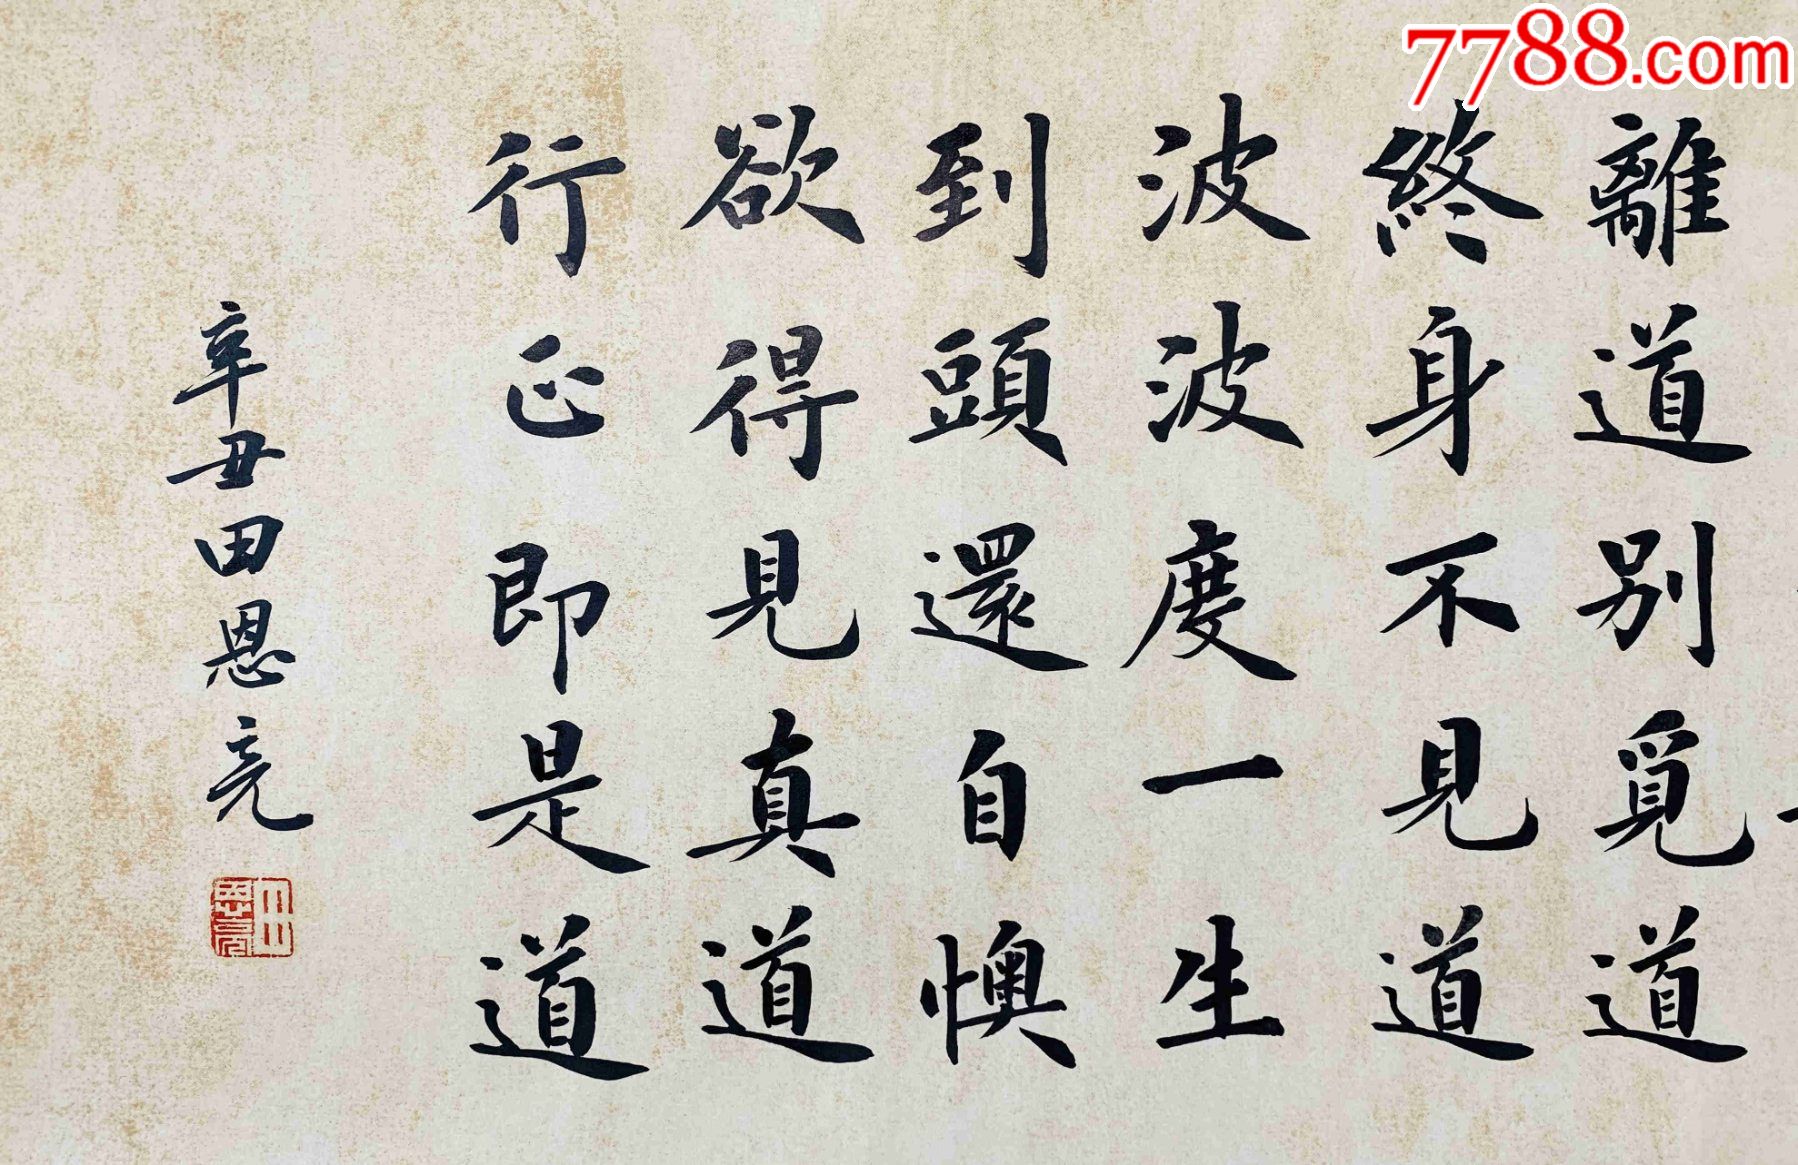 7788.com
離道别覓道
終身不見道
波波度一生
到頭還自懊
欲得見真道
行正即是道
辛丑田恩亮
田恩亮